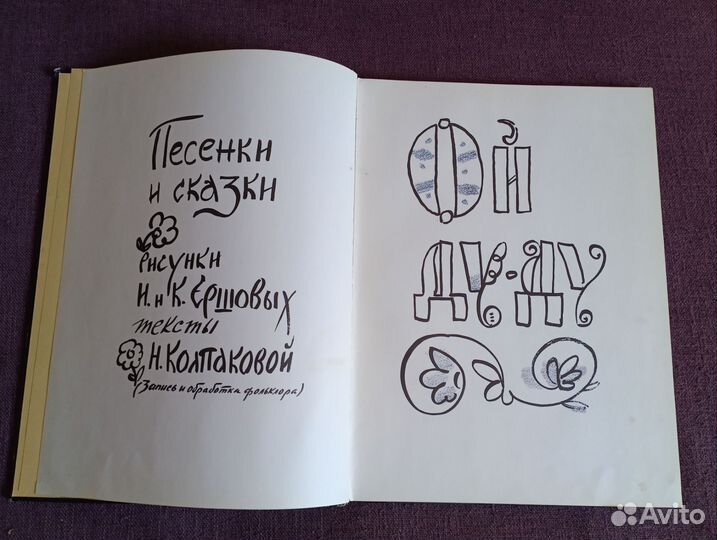 Песенки
и сказки
рисунки
И. и К. Ершовых
тексты
Н. Колпаковой
(Запись и обработка фольклора)
ОЙ
ДУ-ДУ
Avito